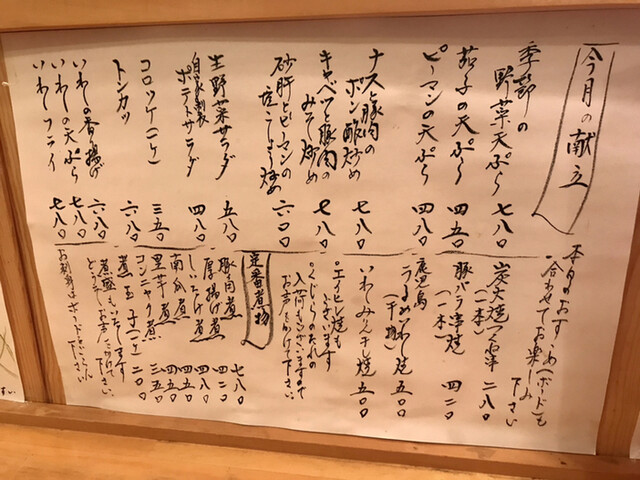 今月の献立
季節の
野菜天ぷら 七八〇
茄子の天ぷら 四五〇
ピーマンの天ぷら 四八〇
ナスと豚肉の
ポン酢炒め 七八〇
キャベツと豚肉の
みそ炒め 七八〇
砂肝とピーマンの
塩こしょう炒め 六〇〇
生野菜サラダ 五八〇
自家製
ポテトサラダ 四八〇
コロッケ(一ケ) 三五〇
トンカツ 六八〇
いわしの香り揚げ 六八〇
いわしの天ぷら 七八〇
いわしフライ 七八〇
本日のおすすめ(ボード)も
合わせてお楽しみ
下さい
炭火焼つくね
(一本) 二八〇
豚バラ串焼
(一本) 四二〇
鹿児島
うるめいわし焼 五〇〇
(干物)
いわしみりん干し焼 五〇〇
○エイヒレ焼も
ございます
○くじらのたれの
入荷もございますので
お声をかけて下さい。
定番煮物
豚肉煮 七八〇
厚揚げ煮 四二〇
しいたけ煮 四八〇
南瓜煮 四五〇
里芋煮 四五〇
コンニャク煮 三五〇
煮玉子(一ケ) 二〇〇
煮盛もいたします
どうぞお声をかけて下さい。
お刺身はボードをごらん下さい